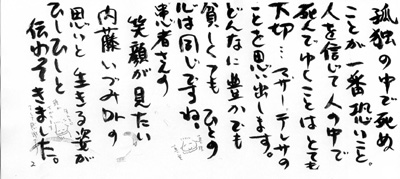 孤独の中で死ぬ
ことが一番恐いこと。
人を信じて人の中で
死んでゆくことはとても
大切…マザーテレサの
ことを思い出します。
どんなに豊かでも
貧しくても ひとの
心は同じですね、
患者さんの
笑顔が見たい
内藤いづみDrの
思いと生きる姿が
ひしひしと
伝わってきました。
2